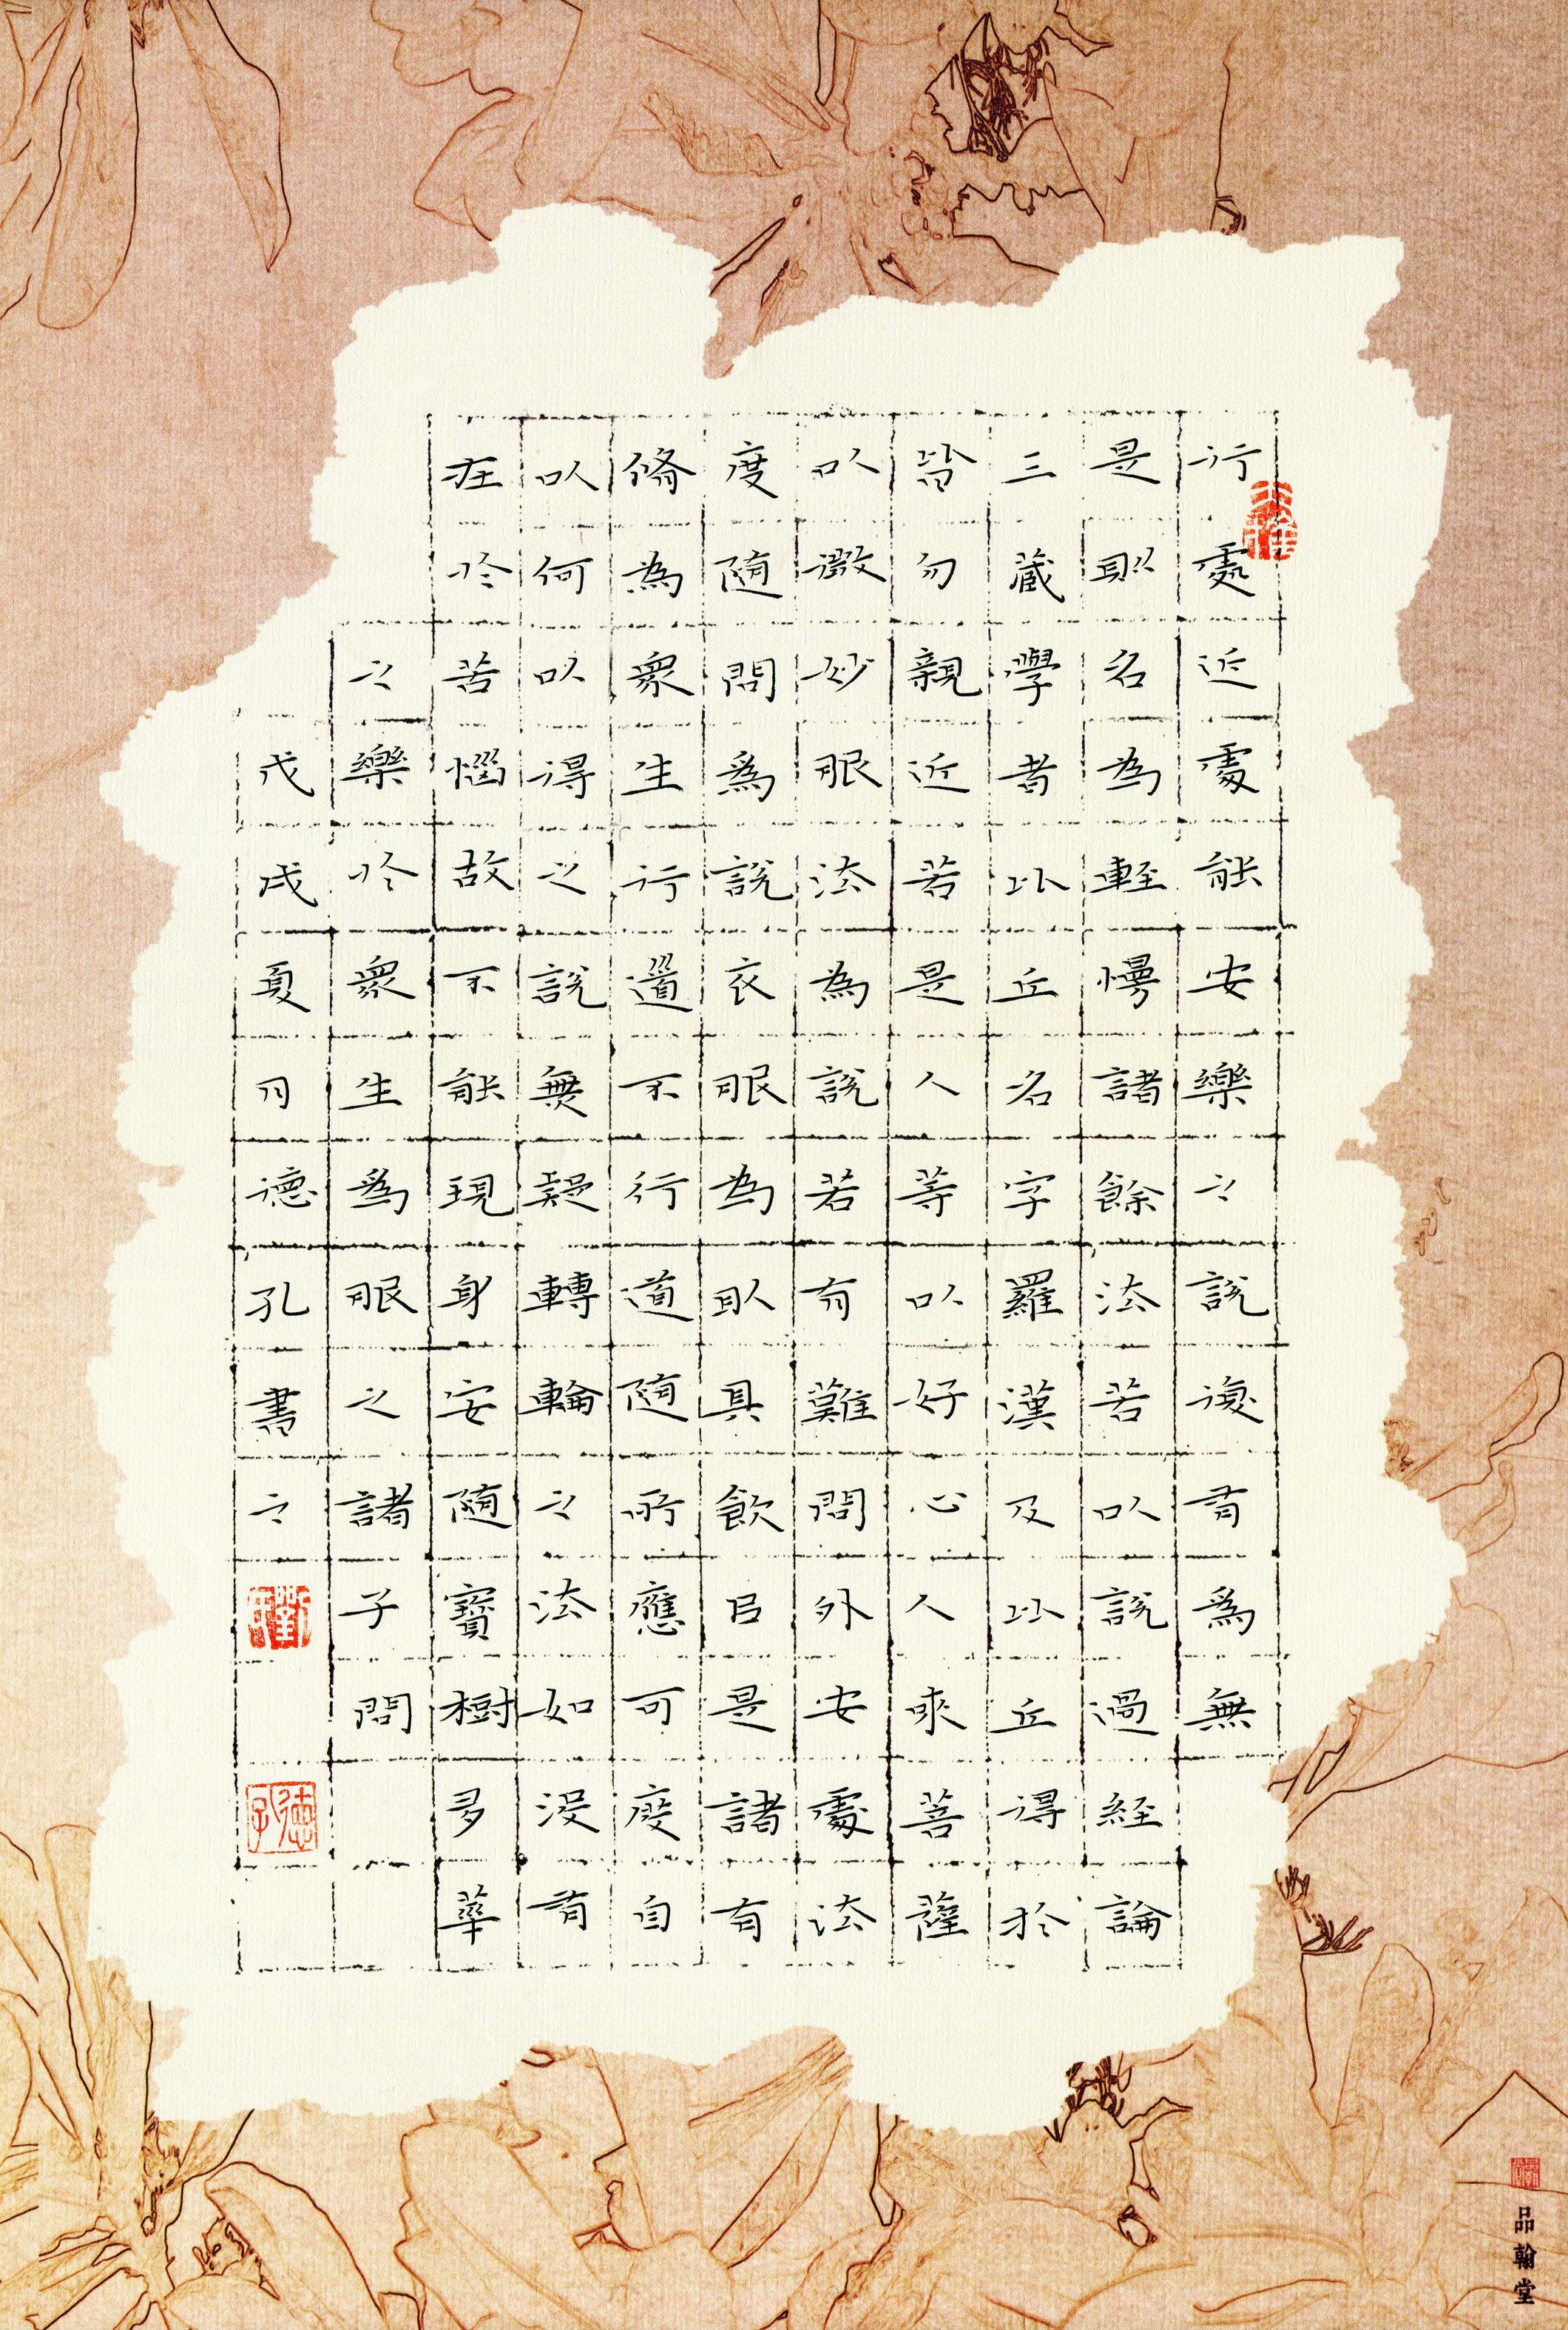 行處近處能安樂之說復有爲無
是名為輕慢諸餘法若以說過經論
三藏學者比丘名字羅漢及比丘得於
皆勿親近若是人等以好心人來菩薩
以微妙服法為說若有難問外安處法
度隨問爲說衣服為臥具飲㠯是諸有
脩為眾生行道不行道隨所應可度自
以何以得之說無疑轉輪之法如沒有
在於苦惱故不能現身安隨寶樹多華
之樂於眾生爲服之諸子問
戊戌夏月德孔書之
德孔
品翰堂